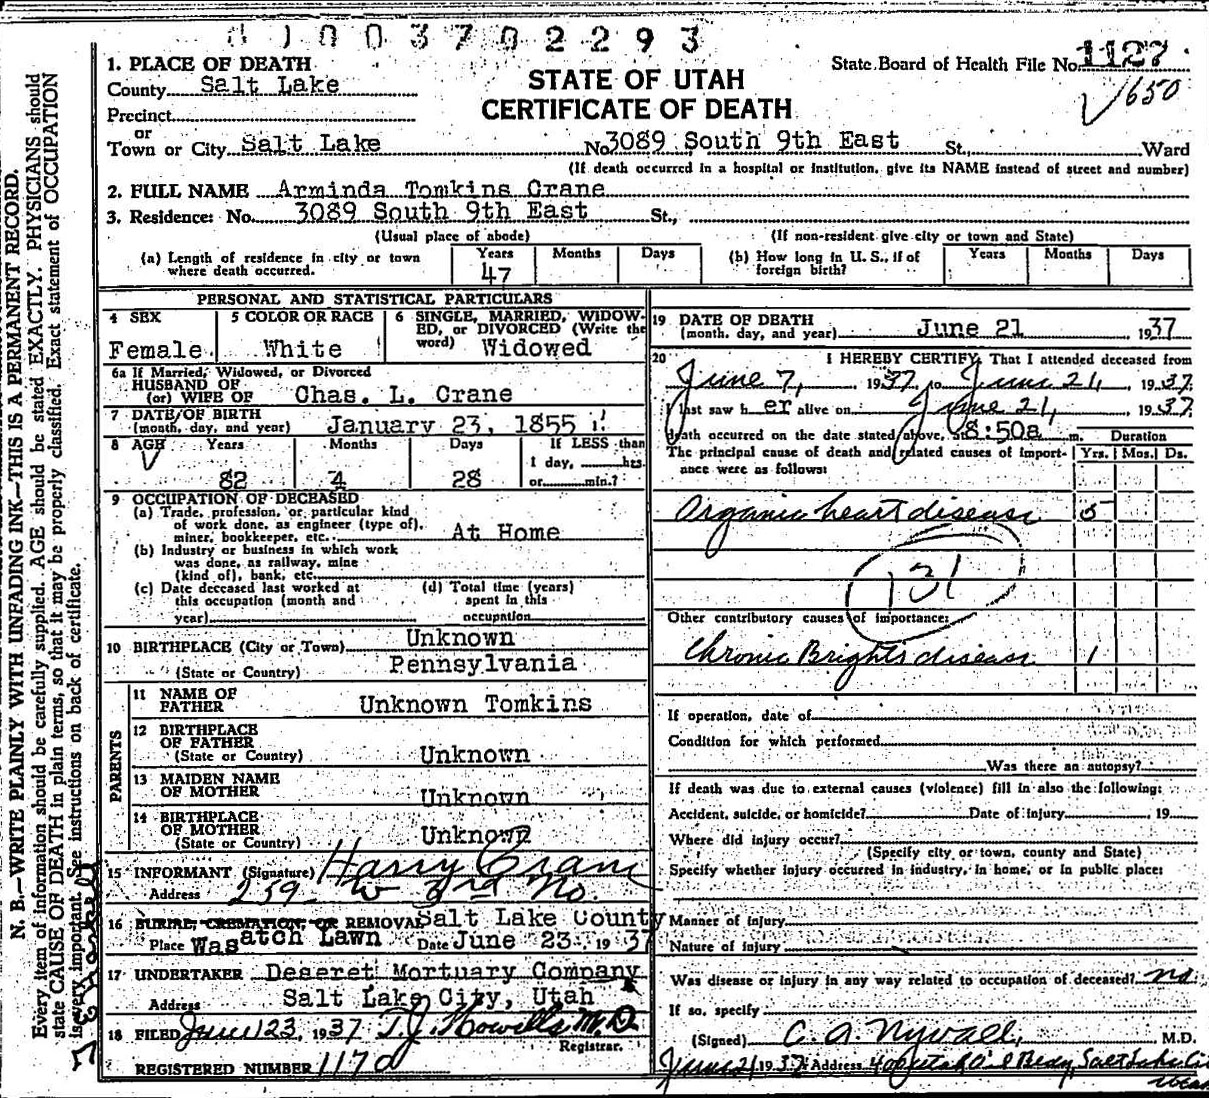 0 1 0 0 3 7 0 2 2 9 3
STATE OF UTAH
CERTIFICATE OF DEATH
State Board of Health File No. 1127
√650
1. PLACE OF DEATH
County Salt Lake
Precinct
or
Town or City Salt Lake No. 3089 South 9th East St., Ward
(If death occurred in a hospital or institution, give its NAME instead of street and number)
2. FULL NAME Arminda Tomkins Crane
3. Residence: No. 3089 South 9th East St.,
(Usual place of abode) (If non-resident give city or town and State)
(a) Length of residence in city or town where death occurred. Years 47 Months Days
(b) How long in U. S., if of foreign birth? Years Months Days
PERSONAL AND STATISTICAL PARTICULARS
4 SEX Female
5 COLOR OR RACE White
6 SINGLE, MARRIED, WIDOW-ED, or DIVORCED (Write the word) Widowed
6a If Married, Widowed, or Divorced
HUSBAND OF
(or) WIFE OF Chas. L. Crane
7 DATE OF BIRTH
(month, day, and year) January 23, 1855
8 AGE Years 82 Months 4 Days 28
If LESS than
1 day, hrs.
or min.?
9 OCCUPATION OF DECEASED
(a) Trade, profession, or particular kind
of work done, as engineer (type of),
miner, bookkeeper, etc. At Home
(b) Industry or business in which work
was done, as railway, mine
(kind of), bank, etc.
(c) Date deceased last worked at
this occupation (month and
year)
(d) Total time (years)
spent in this
occupation
10 BIRTHPLACE (City or Town) Unknown
(State or Country) Pennsylvania
PARENTS
11 NAME OF
FATHER Unknown Tomkins
12 BIRTHPLACE
OF FATHER
(State or Country) Unknown
13 MAIDEN NAME
OF MOTHER Unknown
14 BIRTHPLACE
OF MOTHER
(State or Country) Unknown
15 INFORMANT (Signature) Harry Crane
Address 259 W 3rd No.
16 BURIAL, CREMATION, OR REMOVAL Salt Lake County
Place Wasatch Lawn Date June 23, 1937
17 UNDERTAKER Deseret Mortuary Company
Address Salt Lake City, Utah
18 FILED June 23, 1937 T. J. Howells M.D.
Registrar.
REGISTERED NUMBER 1170
19 DATE OF DEATH
(month, day, and year) June 21 1937
20 I HEREBY CERTIFY, That I attended deceased from
June 7, 1937, to June 21, 1937
I last saw her alive on June 21, 1937
death occurred on the date stated above, at 8:50a m.
The principal cause of death and related causes of import-
ance were as follows:
Duration
Yrs. Mos. Ds.
Organic heart disease 5
131
Other contributory causes of importance:
Chronic Brights disease 1
If operation, date of
Condition for which performed
Was there an autopsy?
If death was due to external causes (violence) fill in also the following:
Accident, suicide, or homicide? Date of injury 19
Where did injury occur?
(Specify city or town, county and State)
Specify whether injury occurred in industry, in home, or in public place:
Manner of injury
Nature of injury
Was disease or injury in any way related to occupation of deceased? no
If so, specify
(Signed) C. A. Nyvall, M.D.
June 21 1937 Address Utah Oil Bldg, Salt Lake City
Utah
N. B.—WRITE PLAINLY WITH UNFADING INK—THIS IS A PERMANENT RECORD.
Every item of information should be carefully supplied. AGE should be stated EXACTLY. PHYSICIANS should
state CAUSE OF DEATH in plain terms, so that it may be properly classified. Exact statement of OCCUPATION
is very important. See instructions on back of certificate.